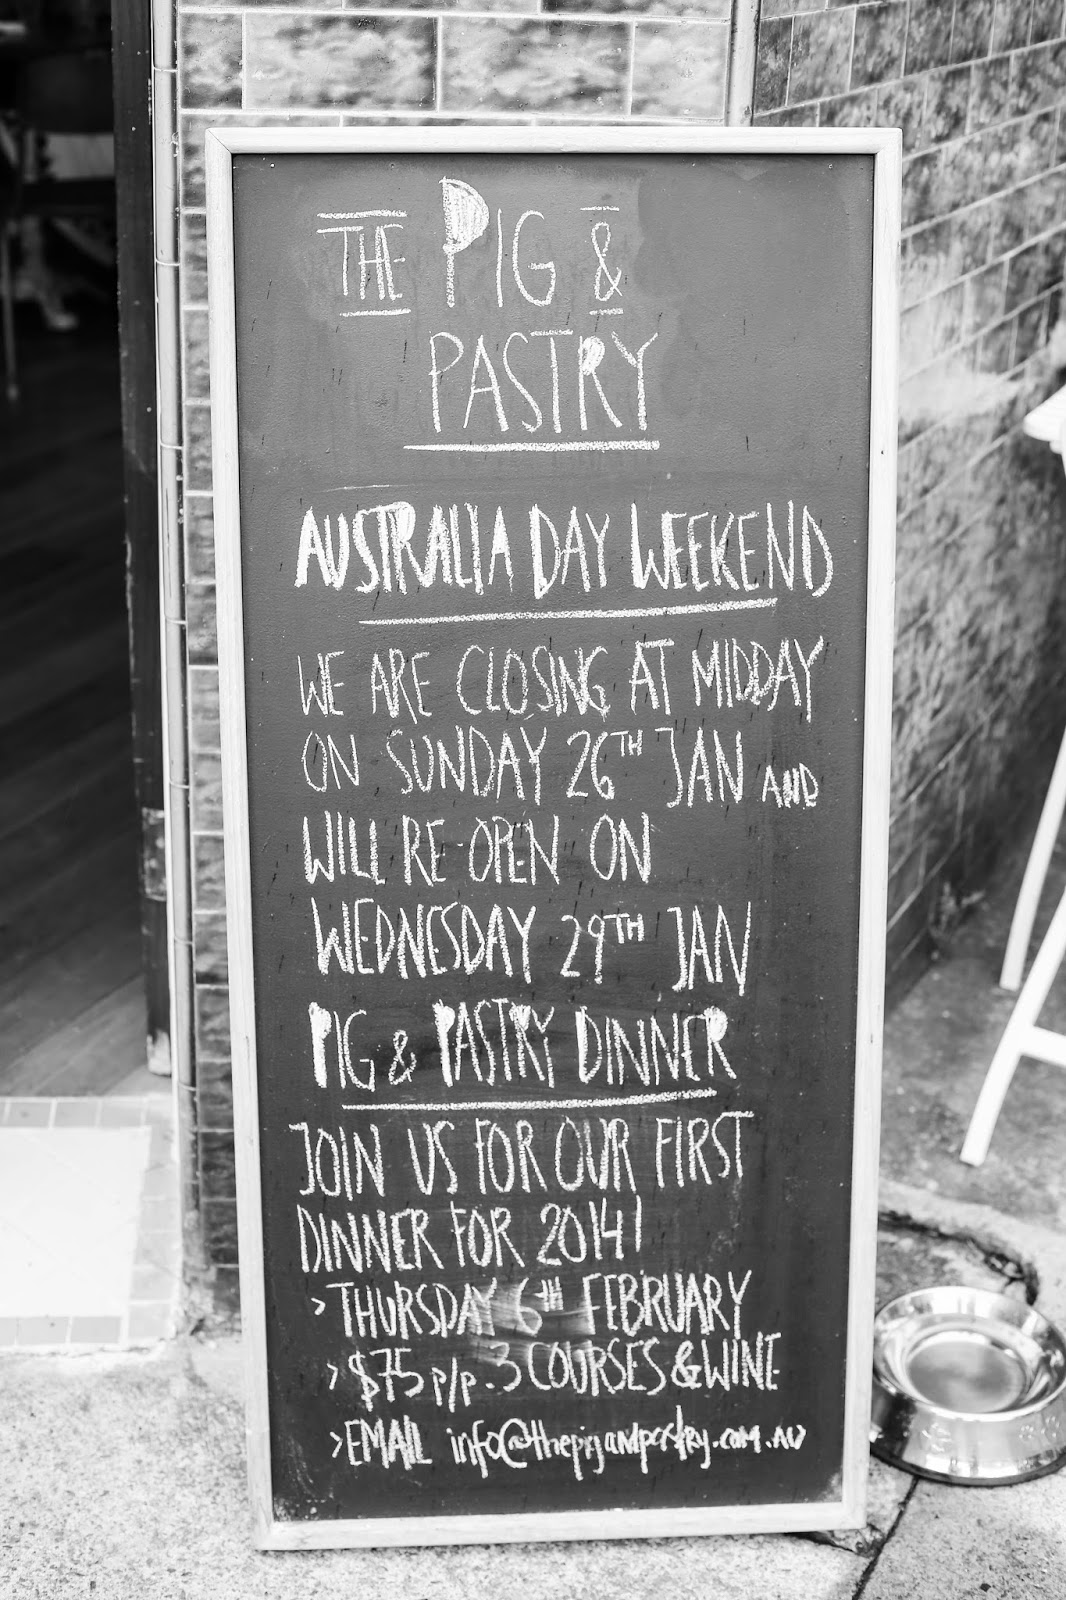 THE PIG &
PASTRY
AUSTRALIA DAY WEEKEND
WE ARE CLOSING AT MIDDAY
ON SUNDAY 26TH JAN AND
WILL RE-OPEN ON
WEDNESDAY 29TH JAN
PIG & PASTRY DINNER
JOIN US FOR OUR FIRST
DINNER FOR 2014!
> THURSDAY 6TH FEBRUARY
> $75 p/p. 3 COURSES & WINE
> EMAIL info@thepigandpastry.com.au